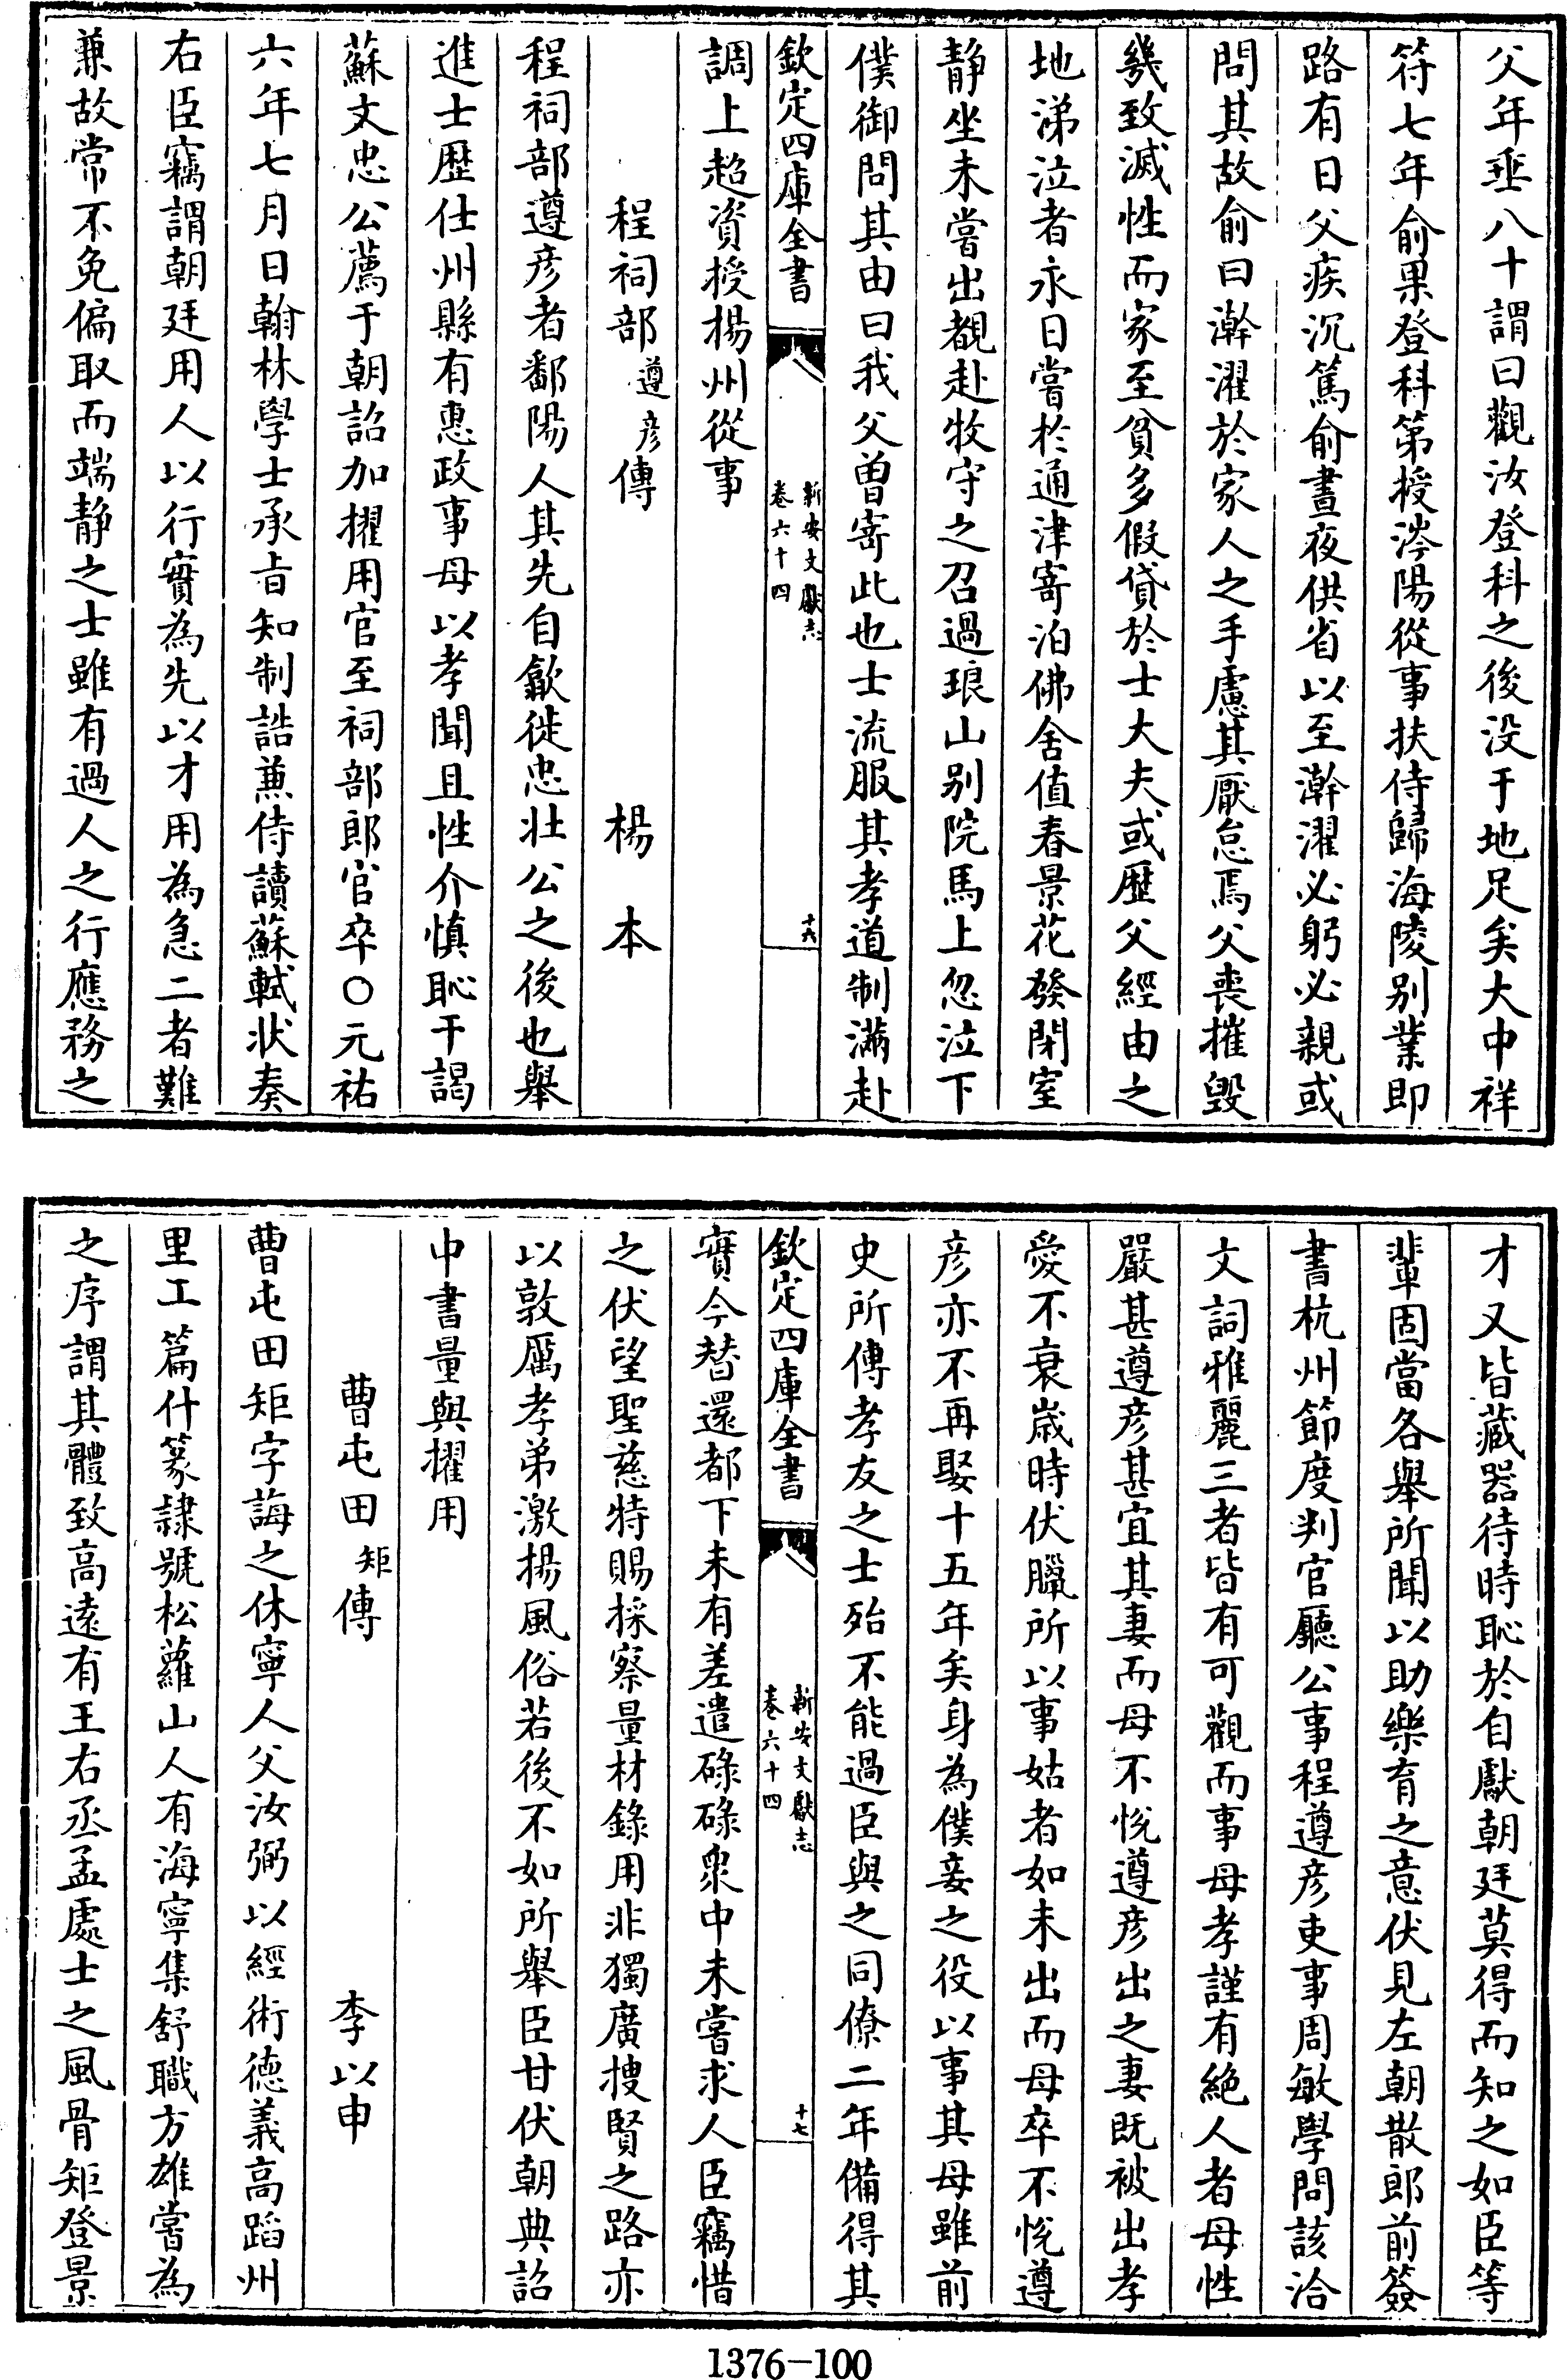 父年垂八十謂曰觀汝登科之後没于地足矣大中祥
符七年俞果登科第授涔陽從事扶侍歸海陵别業即
路有日父疾沉篤俞晝夜供省以至澣濯必躬必親或
問其故俞曰澣濯於家人之手慮其厭怠焉父喪摧毁
幾致滅性而家至貧多假貸於士大夫或歴父經由之
地涕泣者永日嘗於通津寄泊佛舍值春景花發閉室
靜坐未嘗出覩赴牧守之召過琅山别院馬上忽泣下
僕御問其由曰我父曽寄此也士流服其孝道制滿赴
欽定四庫全書
新安文獻志
卷六十四
十六
調上超資授楊州從事
程祠部遵彦傳 楊本
程祠部遵彦者鄱陽人其先自歙徙忠壯公之後也舉
進士歴仕州縣有惠政事母以孝聞且性介慎恥干謁
蘇文忠公薦于朝詔加擢用官至祠部郎官卒〇元祐
六年七月日翰林學士承旨知制誥兼侍讀蘇軾狀奏
右臣竊謂朝廷用人以行實為先以才用為急二者難
兼故常不免偏取而端静之士雖有過人之行應務之
才又皆藏器待時恥於自獻朝廷莫得而知之如臣等
輩固當各舉所聞以助樂育之意伏見左朝散郎前簽
書杭州節度判官廳公事程遵彦吏事周敏學問該洽
文詞雅麗三者皆有可觀而事母孝謹有絶人者母性
嚴甚遵彦甚宜其妻而母不悦遵彦出之妻既被出孝
愛不衰歳時伏臘所以事姑者如未出而母卒不悦遵
彦亦不再娶十五年矣身為僕妾之役以事其母雖前
史所傳孝友之士殆不能過臣與之同僚二年備得其
欽定四庫全書
新安文獻志
卷六十四
十七
實今替還都下未有差遣碌碌衆中未嘗求人臣竊惜
之伏望聖慈特賜採察量材錄用非獨廣搜賢之路亦
以敦厲孝弟激揚風俗若後不如所舉臣甘伏朝典詔
中書量與擢用
曹屯田矩傳 李以申
曹屯田矩字誨之休寧人父汝弼以經術德義高蹈州
里工篇什篆隷號松蘿山人有海寧集舒職方雄嘗為
之序謂其體致高逺有王右丞孟處士之風骨矩登景
1376-100